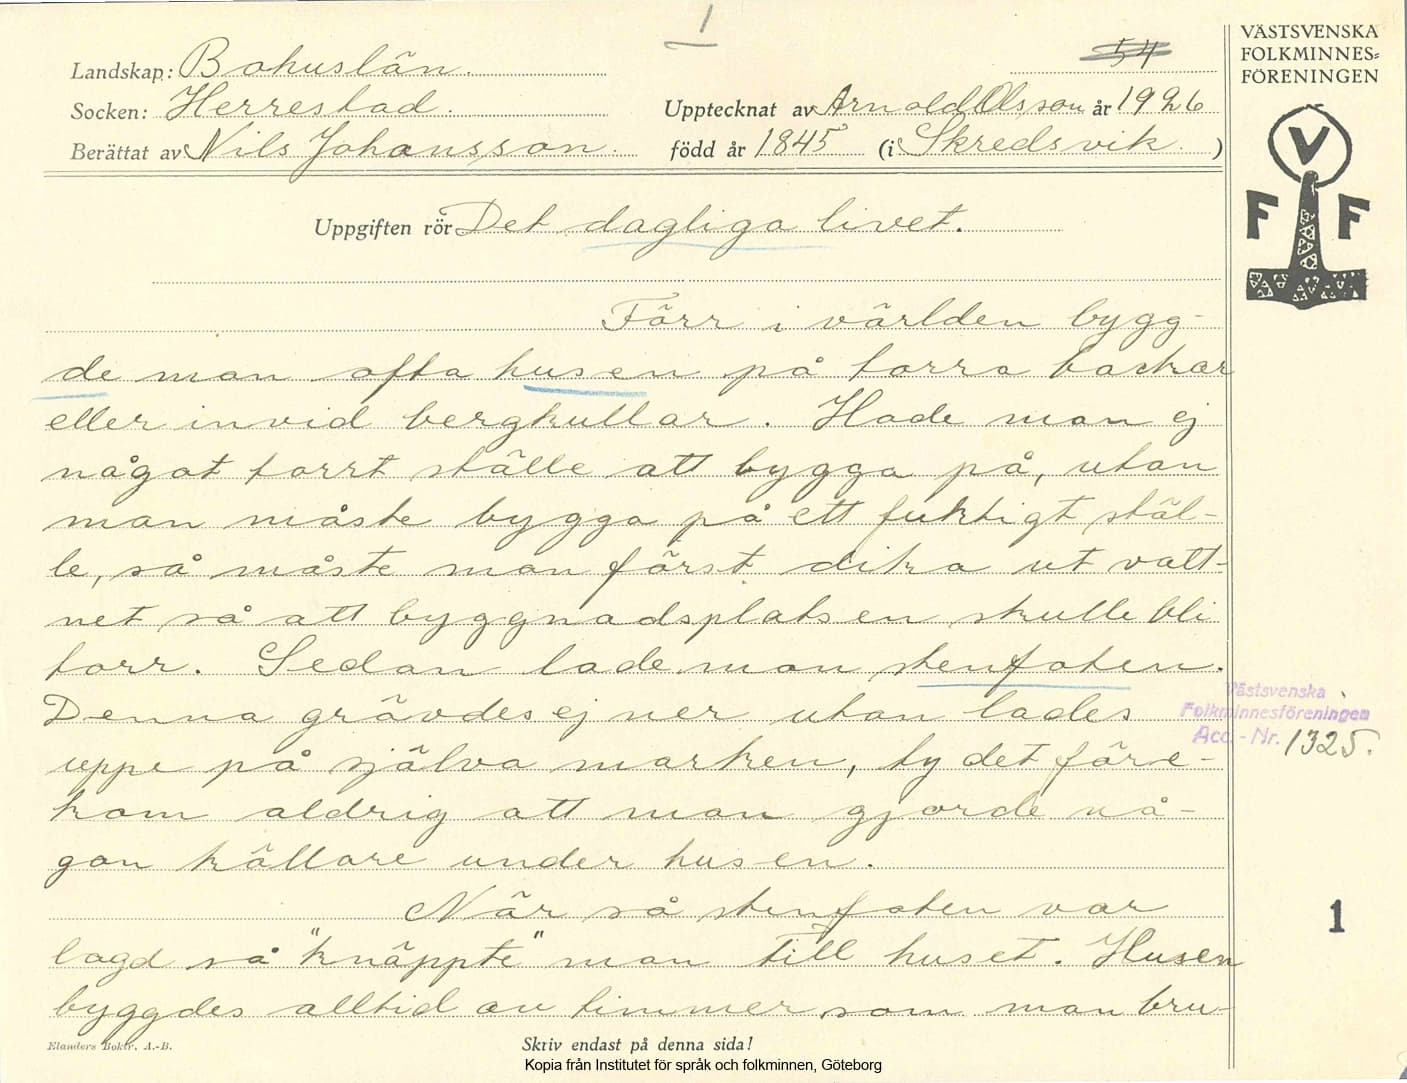 1
54
VÄSTSVENSKA
FOLKMINNES=
FÖRENINGEN
Landskap: Bohuslän.
Socken: Herrestad.
Upptecknat av Arnold Olsson år 1926
Berättat av Nils Johansson.
född år 1845 (i Skredsvik.)
V
F F
Uppgiften rör Det dagliga livet.
Förr i världen bygg-
de man ofta husen på torra backar
eller invid bergkullar. Hade man ej
något torrt ställe att bygga på, utan
man måste bygga på ett fuktigt stäl-
le, så måste man först dika ut vatt-
net så att byggnadsplatsen skulle bli
torr. Sedan lade man stenfoten.
Denna grävdes ej ner utan lades
uppe på själva marken, ty det före-
kom aldrig att man gjorde nå-
gon källare under husen.
Västsvenska
Folkminnesföreningen
Acc.-Nr. 1325.
När så stenfoten var
lagd så "knäppte" man till huset. Husen
byggdes alltid av timmer som man bru-
1
Elanders Boktr. A.-B.
Skriv endast på denna sida!
Kopia från Institutet för språk och folkminnen, Göteborg